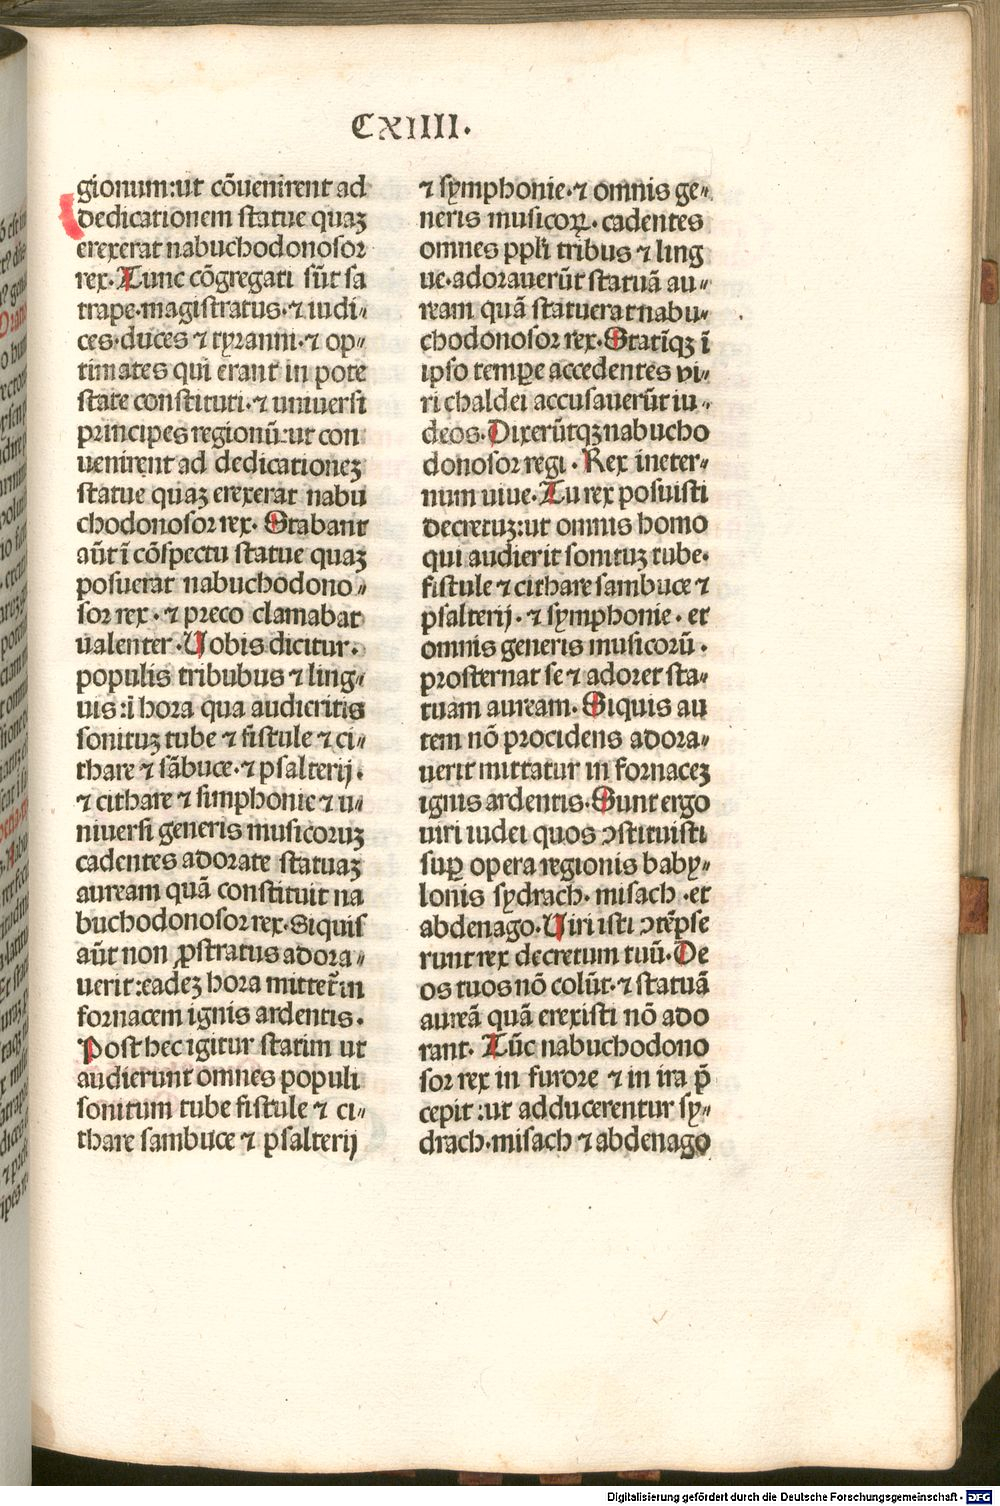 CXIIII.
gionum:ut cõuenirent ad
dedicationem statue quaꝫ
erexerat nabuchodonosor
rex. Tunc cõgregati sũt sa
trape.magistratus.⁊ iudi〃
ces.duces ⁊ tyranni.⁊ op〃
timates qui erant in pote
state constituti.⁊ uniuersi
principes regionũ:ut con
uenirent ad dedicationeꝫ
statue quaꝫ erexerat nabu
chodonosor rex. Stabant
aũt ĩ cõspectu statue quaꝫ
posuerat nabuchodono〃
sor rex.⁊ preco clamabat
ualenter. Uobis dicitur.
populis tribubus ⁊ ling〃
uis:ĩ hora qua audieritis
sonituꝫ tube ⁊ fistule ⁊ ci〃
thare ⁊ sãbuce.⁊ psalterij.
⁊ cithare ⁊ simphonie ⁊ u〃
niuersi generis musicoruꝫ
cadentes adorate statuaꝫ
auream quã constituit na
buchodonosor rex. Siquis
aũt non ꝓstratus adora〃
uerit:eadeꝫ hora mittet̃ in
fornacem ignis ardentis.
Post hec igitur statim ut
audierunt omnes populi
sonitum tube fistule ⁊ ci〃
thare sambuce ⁊ psalterij
⁊ symphonie.⁊ omnis ge〃
neris musicoꝝ. cadentes
omnes ppl̃i tribus ⁊ ling
ue.adorauerũt statuã au〃
ream quã statuerat nabu〃
chodonosor rex. Statĩqꝫ ĩ
ipso tempꝑe accedentes vi〃
ri chaldei accusauerũt iu〃
deos. Dixerũtqꝫ nabucho
donosor regi. Rex ineter〃
num uiue. Tu rex posuisti
decretuꝫ:ut omnis homo
qui audierit sonituꝫ tube.
fistule ⁊ cithare sambuce ⁊
psalterij.⁊ symphonie. et
omnis generis musicorũ.
prosternat se ⁊ adoret sta〃
tuam auream. Siquis au
tem nõ procidens adora〃
uerit mittatur in fornaceꝫ
ignis ardentis. Sunt ergo
uiri iudei quos ↄstituisti
suꝑ opera regionis baby〃
lonis sydrach. misach. et
abdenago. Uiri isti ↄtẽpse
runt rex decretum tuũ. De
os tuos nõ colũt.⁊ statuã
aureã quã erexisti nõ ado
rant. Tũc nabuchodono
sor rex in furore ⁊ in ira p̃
cepit:ut adducerentur sy〃
drach.misach ⁊ abdenago
Digitalisierung gefördert durch die Deutsche Forschungsgemeinschaft - DFG